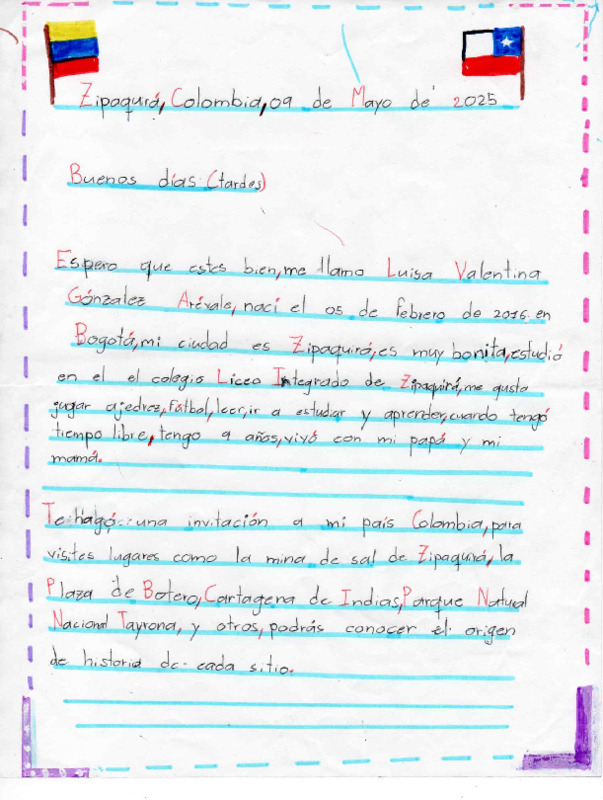 Zipaquirá, Colombia, 09 de Mayo de 2025
Buenos días (tardes)
Espero que estes bien, me llamo Luisa Valentina
Gónzalez Arévalo, nací el 05 de febrero de 2016 en
Bogotá, mi ciudad es Zipaquirá, es muy bonita, estudió
en el el colegio Liceo Integrado de Zipaquirá, me gusta
jugar ajedrez, fútbol, leer, ir a estudiar y aprender, cuando tengó
tiempo libre, tengo 9 años, vivó con mi papá y mi
mamá.
Te hagó una invitación a mi país Colombia, para
visites lugares como la mina de sal de Zipaquirá, la
Plaza de Botero, Cartagena de Indias, Parque Natural
Nacional Tayrona, y otros, podrás conocer el origen
de historia de cada sitio.